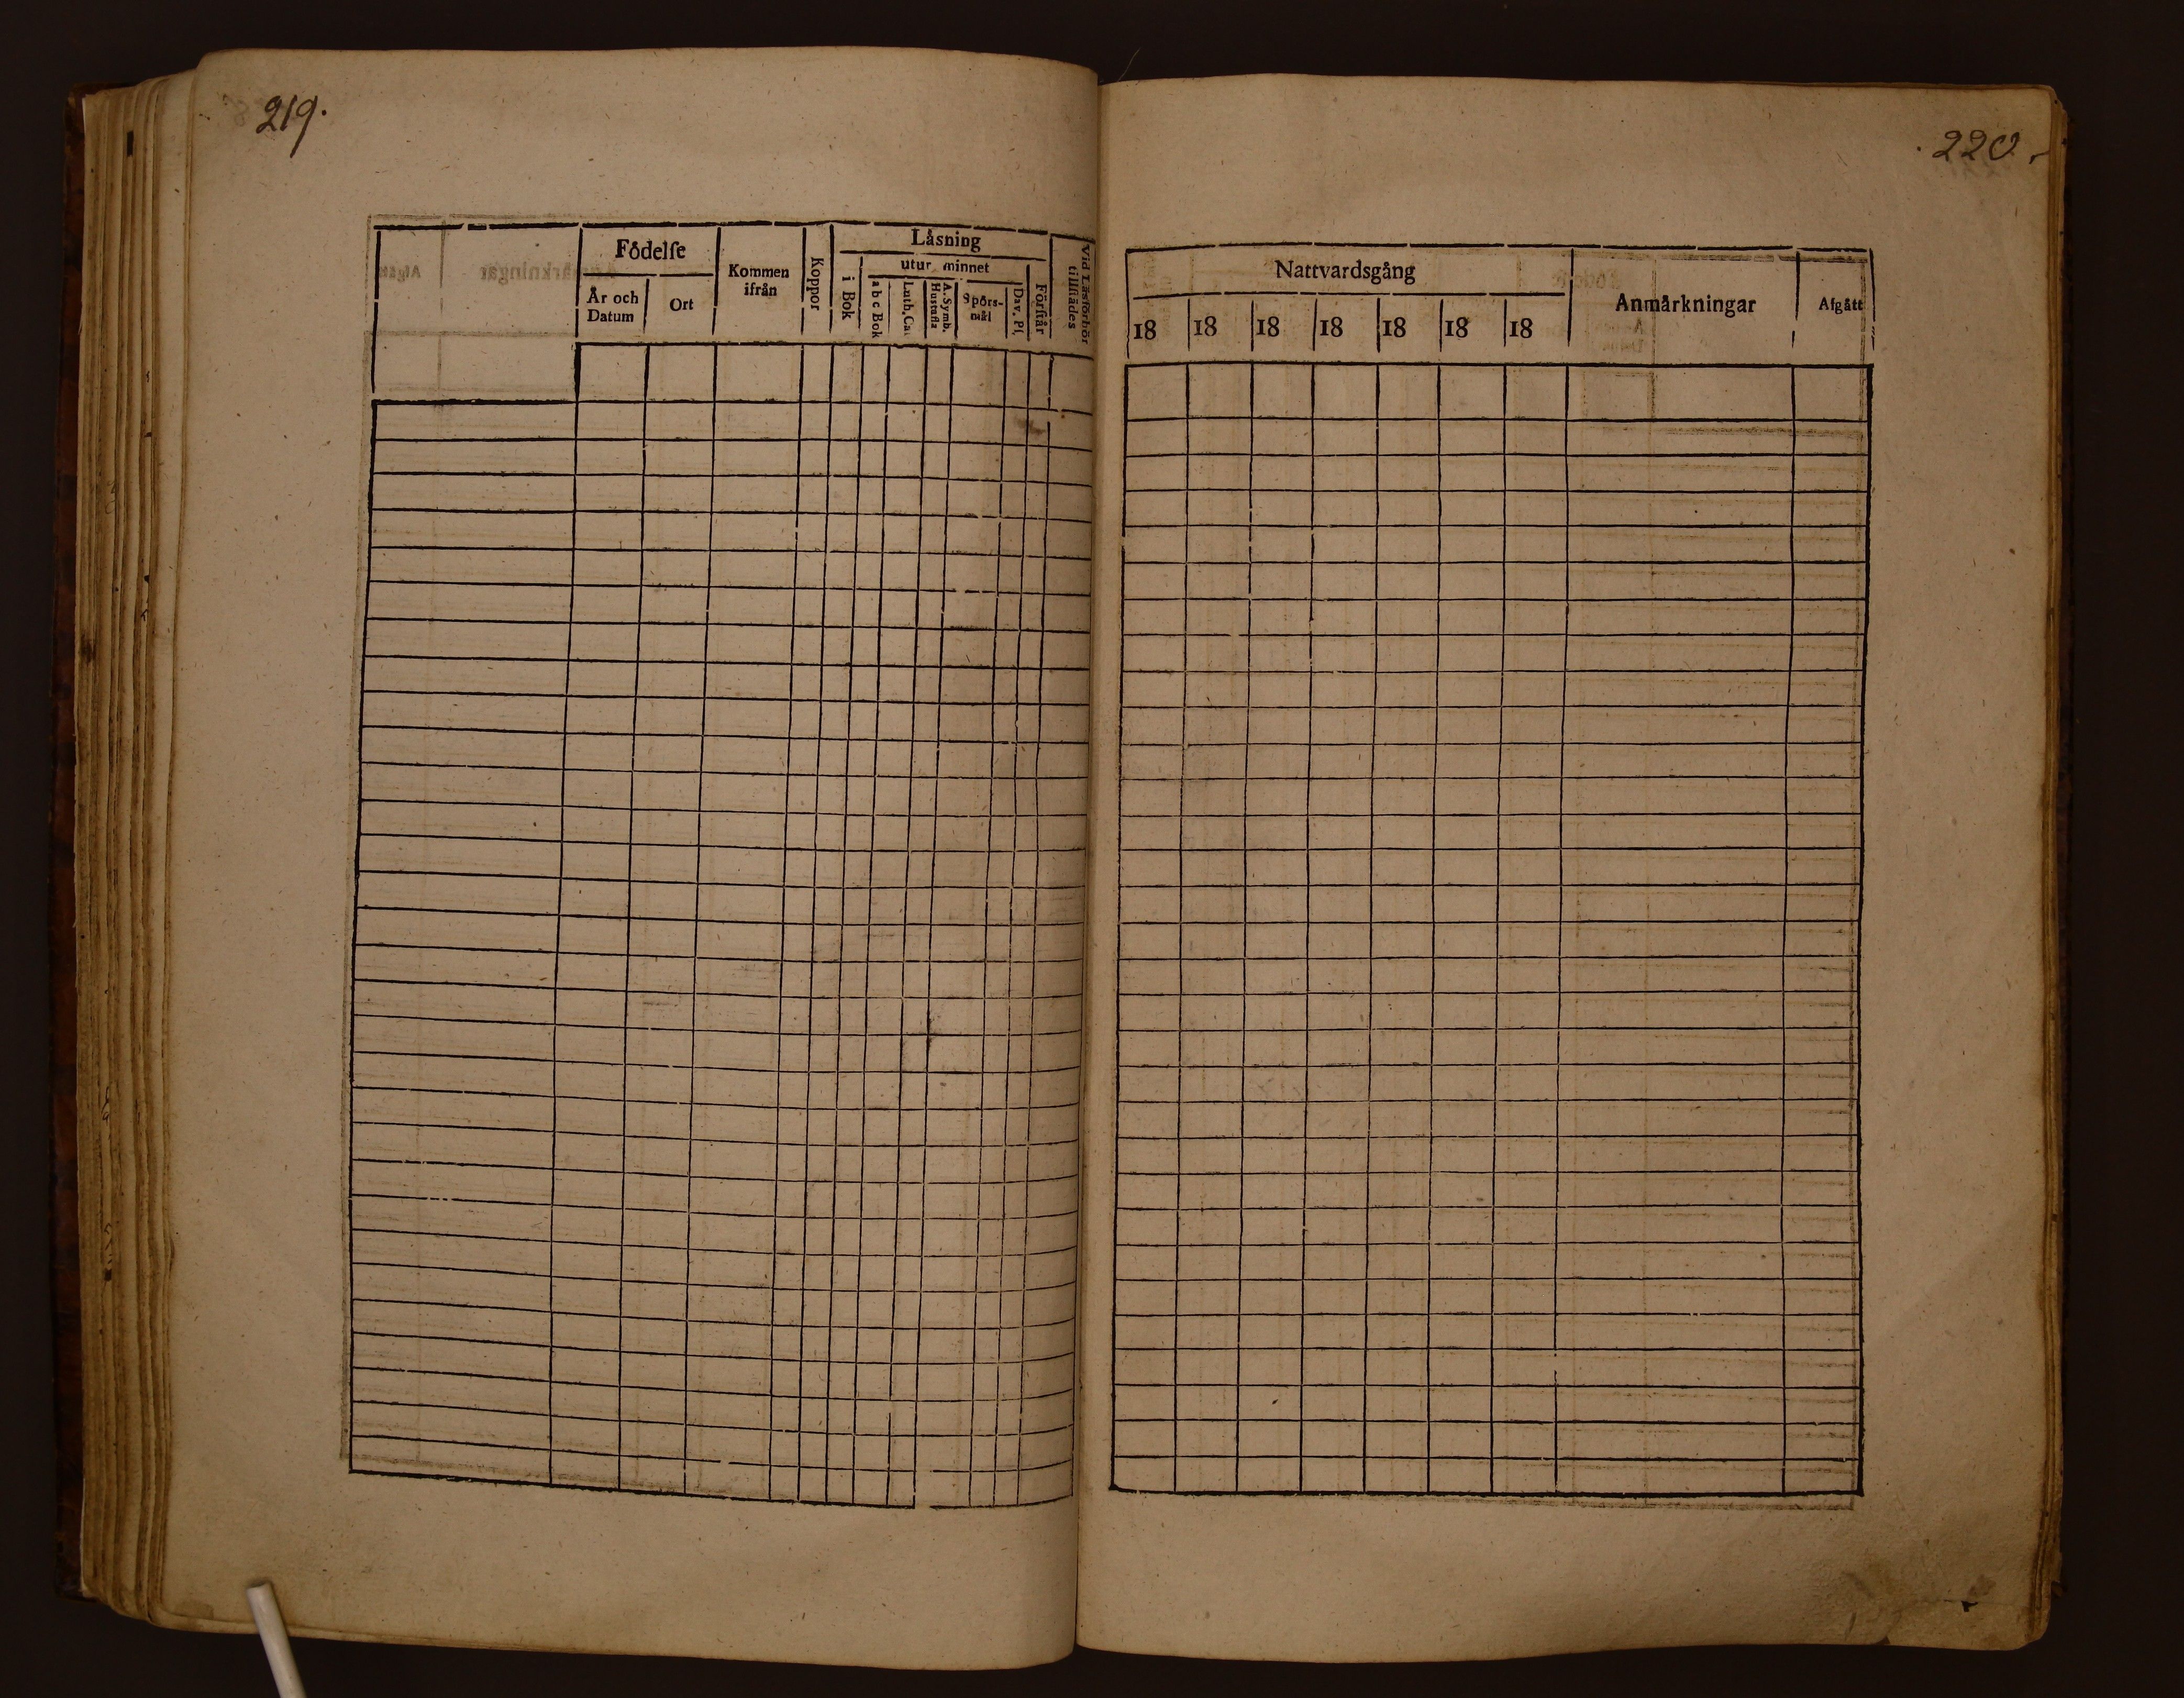 219.
Födelſe
År och
Datum
Ort
Kommen
ifrån
Koppor
Läsning
i Bok
utur minnet
a b c Bok
Luth. Cat.
A. Symb.
Hustafla
Spörs-
mål
Dav. Pſ.
Förſtår
Vid Läsförhör
tillſtädes
220.
Nattvardsgång
18 18 18 18 18 18 18
Anmärkningar
Afgått